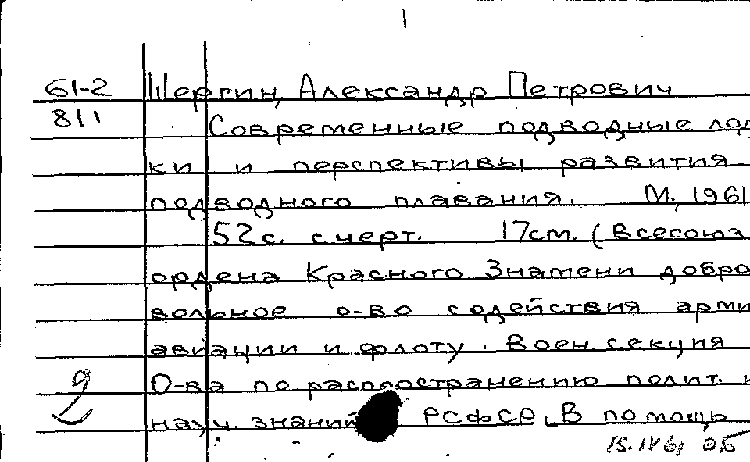 1
61-2 Шергин, Александр Петрович
811 Современные подводные лод
ки и перспективы развития
подводного плавания. М., 1961
52 с. с черт. 17 см. (Всесоюз
ордена Красного Знамени добро
вольное о-во содействия арми
авиации и флоту. Воен. секция
О-ва по распространению полит. и
2 науч. знаний РСФСР. В помощь